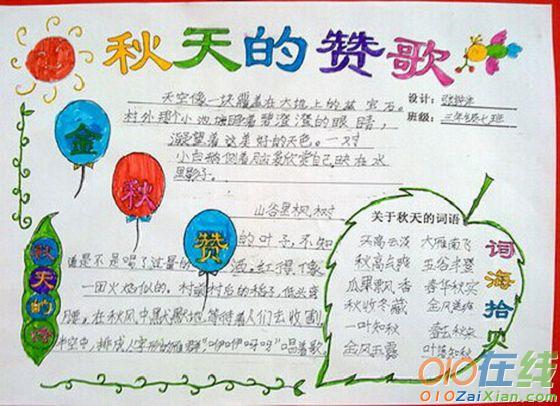 秋天的赞歌
天空像一块覆盖在大地上的蓝宝石。
村外那个小池塘睁着碧澄澄的眼睛，
凝望着这美好的天色。一对
小白鹅侧着脑袋欣赏自己映在水
里影子。
设计：
班级：三年级七班
金
秋
赞
山谷里枫树
的叶子，不知
道是不是喝了过量的酒，红得像
一团火焰似的。村前村后的稻子，低头弯
腰，在秋风中默默地等待着人们去收割
半空中，排成人字形的雁群"咿咿呀呀"唱着歌
秋天的诗
关于秋天的词语
天高云淡 大雁南飞
秋高气爽 五谷丰登
瓜果飘香 春华秋实
秋收冬藏 金风送爽
一叶知秋
金风玉露 叶落知秋
词海拾贝
010在线
010ZaiXian.com